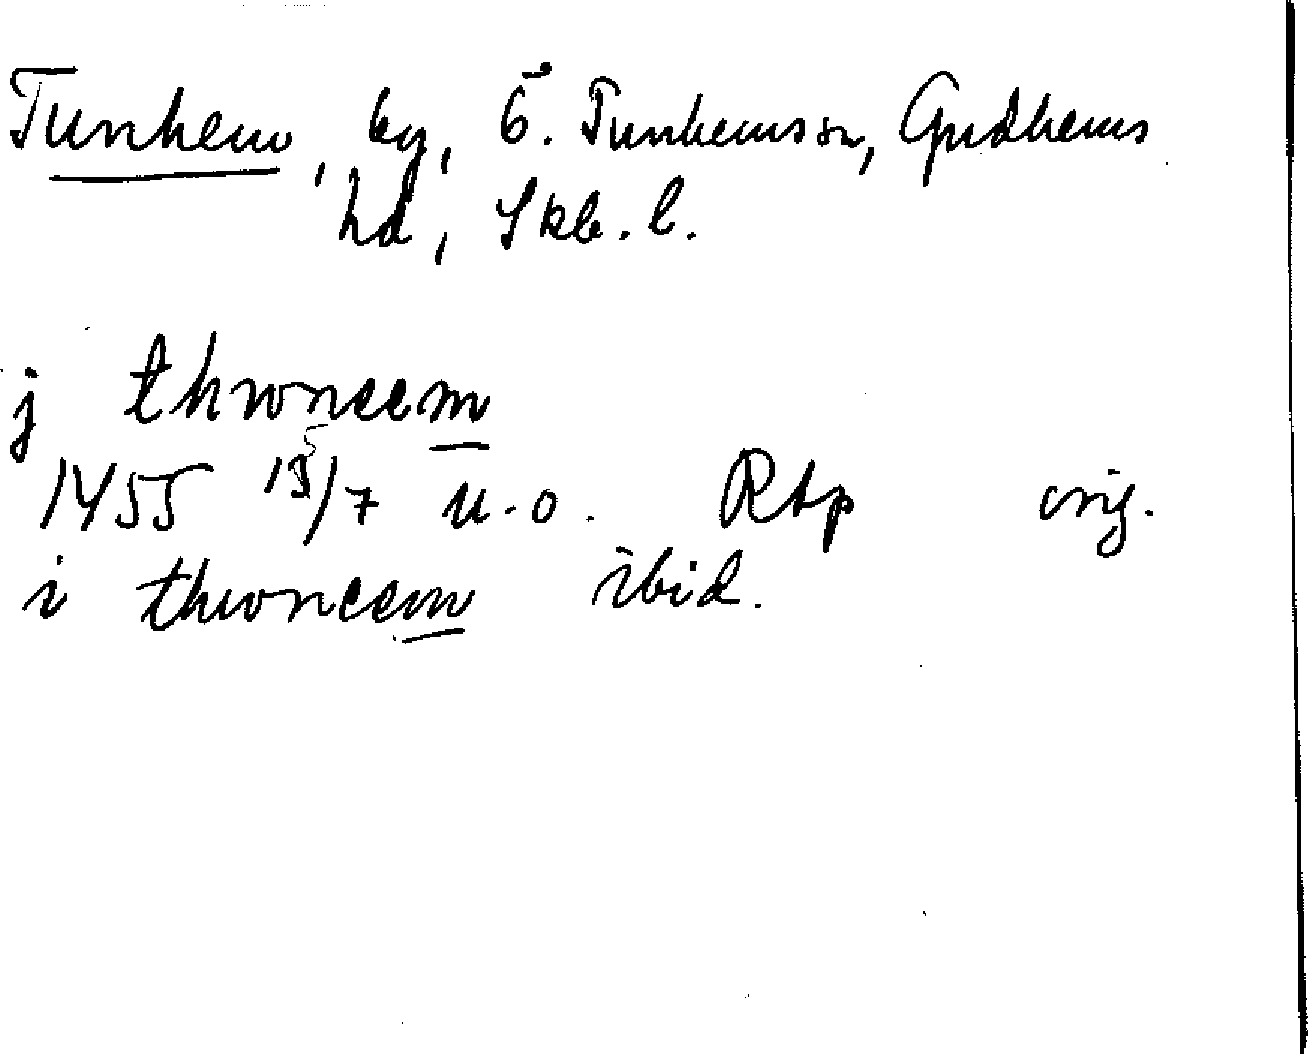 Tunhem, by, Ö. Tunhems sn, Gudhems
hd, Skb. l.
j thwneem
1455 15/7 u.o. RAp orig.
i thwoneem ibid.